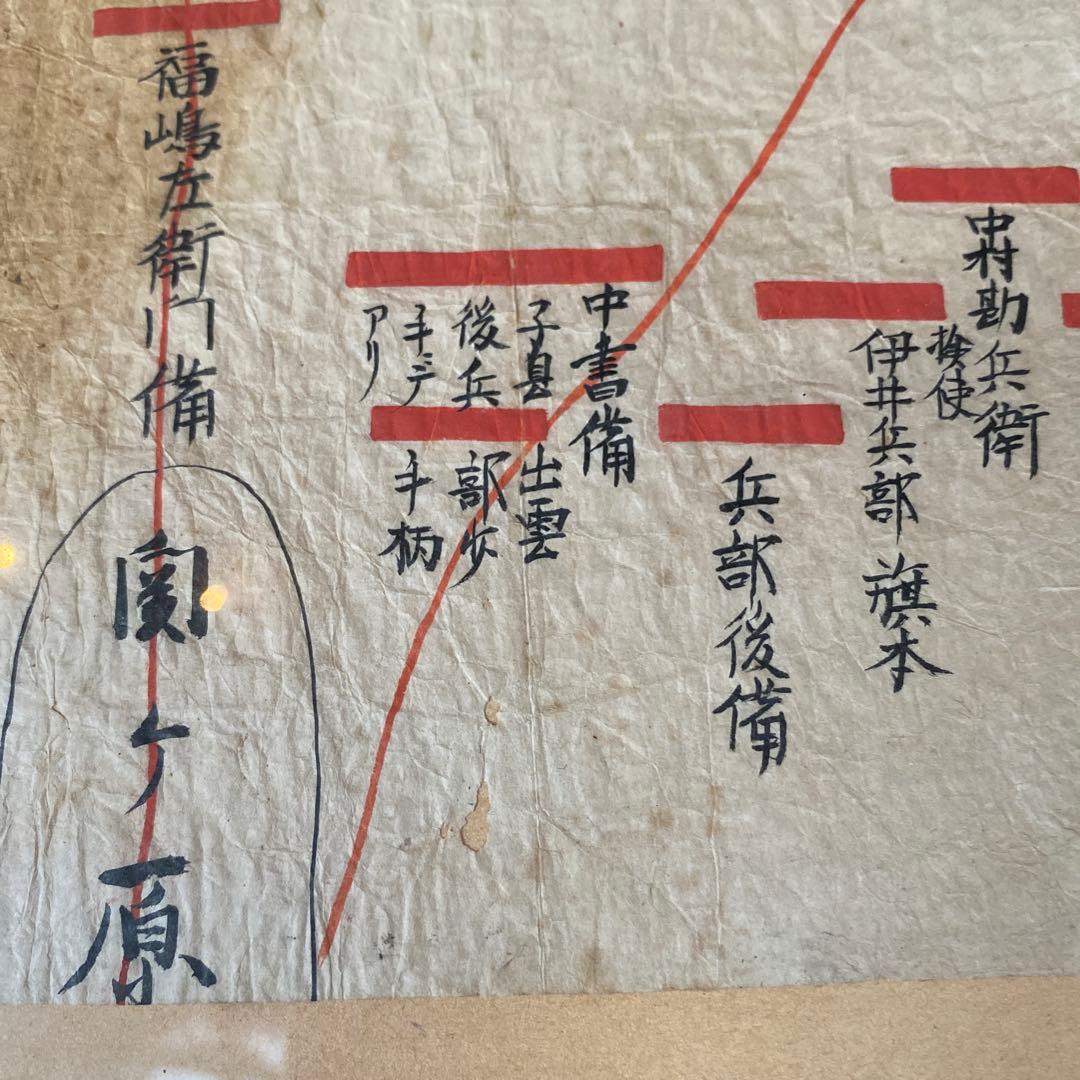 中村勘兵衛
検使
伊井兵部 旗本
兵部後備
中書備
子息 出雲
後兵部少
手ニテ 手柄
アリ
福嶋左衛門備
関ケ原